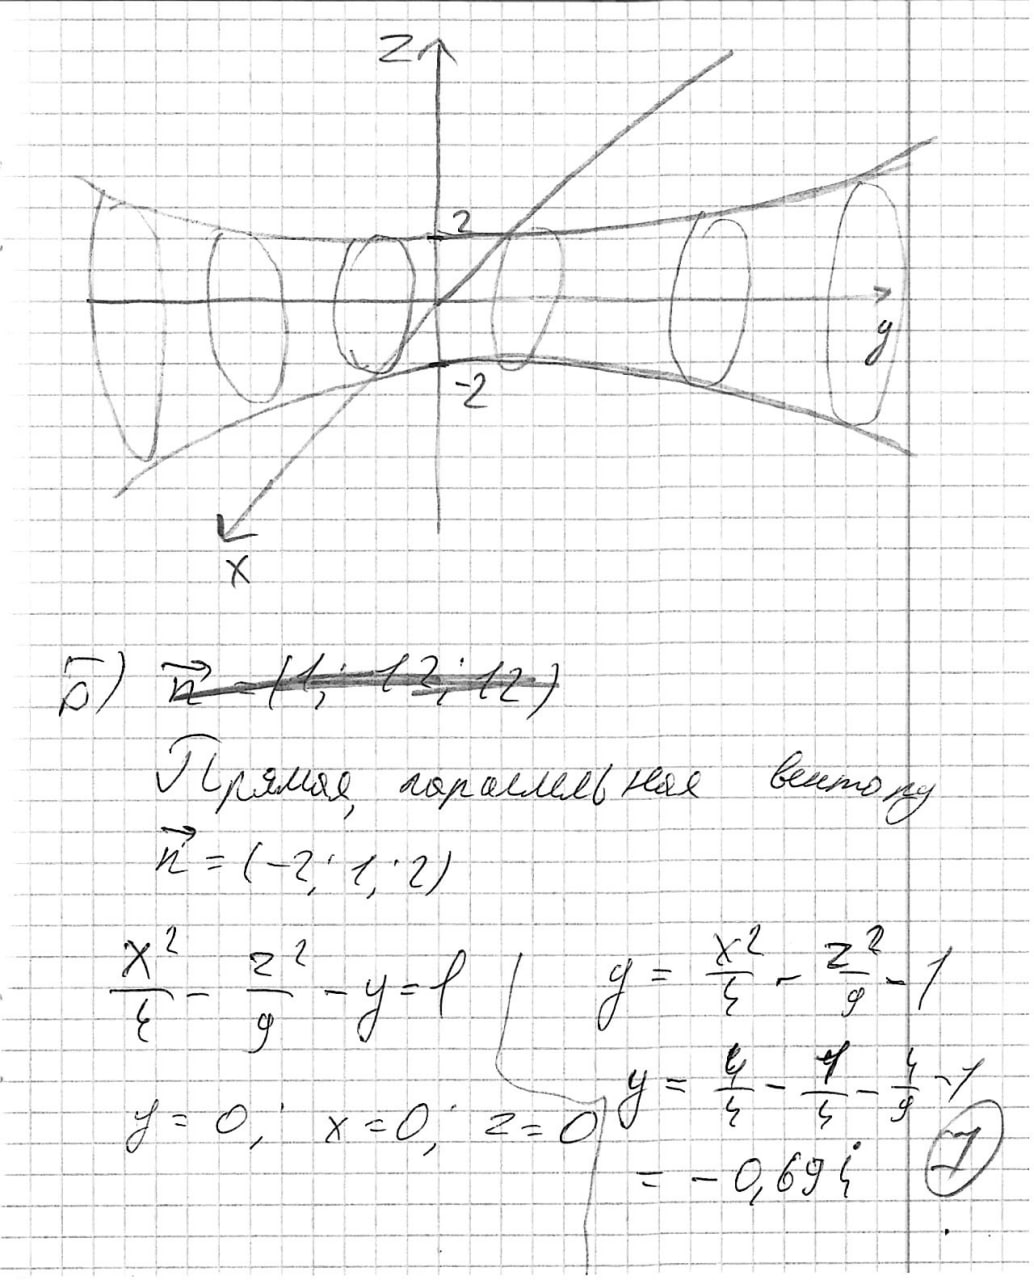 z
2
y
-2
x
б) n⃗ = (1; -12; 12)
Прямая, параллельная вектору
n⃗ = (-2; 1; 2)
x²/4 - z²/9 - y = 1
y = 0; x = 0; z = 0
y = x²/4 - z²/9 - 1
y = 4/4 - 1/4 - 4/9 - 1
= - 0,694
7